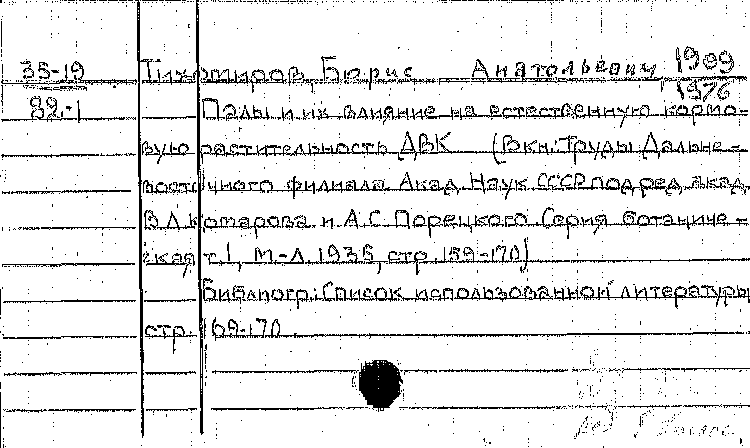 35-19 Тихомиров, Борис Анатольевич 1909
82-1 1976
Палы и их влияние на естественную кормо-
вую растительность ДВК (В кн.: Труды Дальне-
восточного филиала Акад. Наук СССР под ред. акад.
В.Л. Комарова и А.С. Порецкого. Серия ботаниче-
ская т. I, М-Л. 1935, стр. 159-170)
Библиогр.: Список использованной литературы
стр. 169-170.